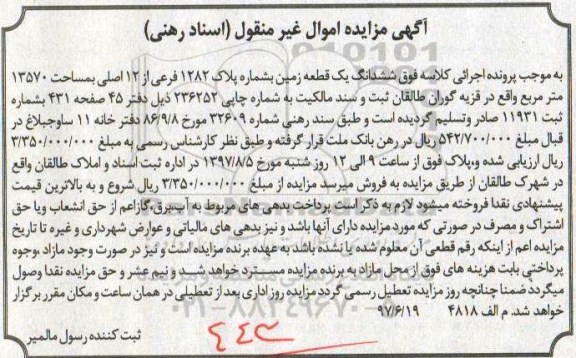 آگهی مزایده اموال غیر منقول (اسناد رهنی)
به موجب پرونده اجرائی کلاسه فوق ششدانگ یک قطعه زمین بشماره پلاک ۱۲۸۲ فرعی از ۱۲ اصلی بمساحت ۱۳۵۷۰
متر مربع واقع در قزیه گوران طالقان ثبت و سند مالکیت به شماره چاپی ۲۳۶۲۵۲ ذیل دفتر ۴۵ صفحه ۴۳۱ بشماره
ثبت ۱۱۹۳۱ صادر وتسلیم گردیده است و طبق سند رهنی شماره ۳۲۶۰۹ مورخ ۸۶/۹/۸ دفتر خانه ۱۱ ساوجبلاغ در
قبال مبلغ ۵۴۲/۷۰۰/۰۰۰ ریال در رهن بانک ملت قرار گرفته و طبق نظر کارشناس رسمی به مبلغ ۳/۳۵۰/۰۰۰/۰۰۰
ریال ارزیابی شده وپلاک فوق از ساعت ۹ الی ۱۲ روز شنبه مورخ ۱۳۹۷/۸/۵ در اداره ثبت اسناد و املاک طالقان واقع
در شهرک طالقان از طریق مزایده به فروش میرسد مزایده از مبلغ ۳/۳۵۰/۰۰۰/۰۰۰ ریال شروع و به بالاترین قیمت
پیشنهادی نقدا فروخته میشود لازم به ذکر است پرداخت بدهی های مربوط به آب،برق،گازاعم از حق انشعاب ویا حق
اشتراک و مصرف در صورتی که مورد مزایده دارای آنها باشد و نیز بدهی های مالیاتی و عوارض شهرداری و غیره تا تاریخ
مزایده اعم از اینکه رقم قطعی آن معلوم شده یا نشده باشد به عهده برنده مزایده است و نیز در صورت وجود مازاد ،وجوه
پرداختی بابت هزینه های فوق از محل مازاد به برنده مزایده مسترد خواهد شد و نیم عشر و حق مزایده نقدا وصول
میگردد ضمنا چنانچه روز مزایده تعطیل رسمی گردد مزایده روز اداری بعد از تعطیلی در همان ساعت و مکان مقرر برگزار
خواهد شد. م الف ۴۸۱۸ ۹۷/۶/۱۹
ثبت کننده رسول مالمیر
۴۴۳
۰۲۱-۸۸۳۴۹۶۷۰-۵